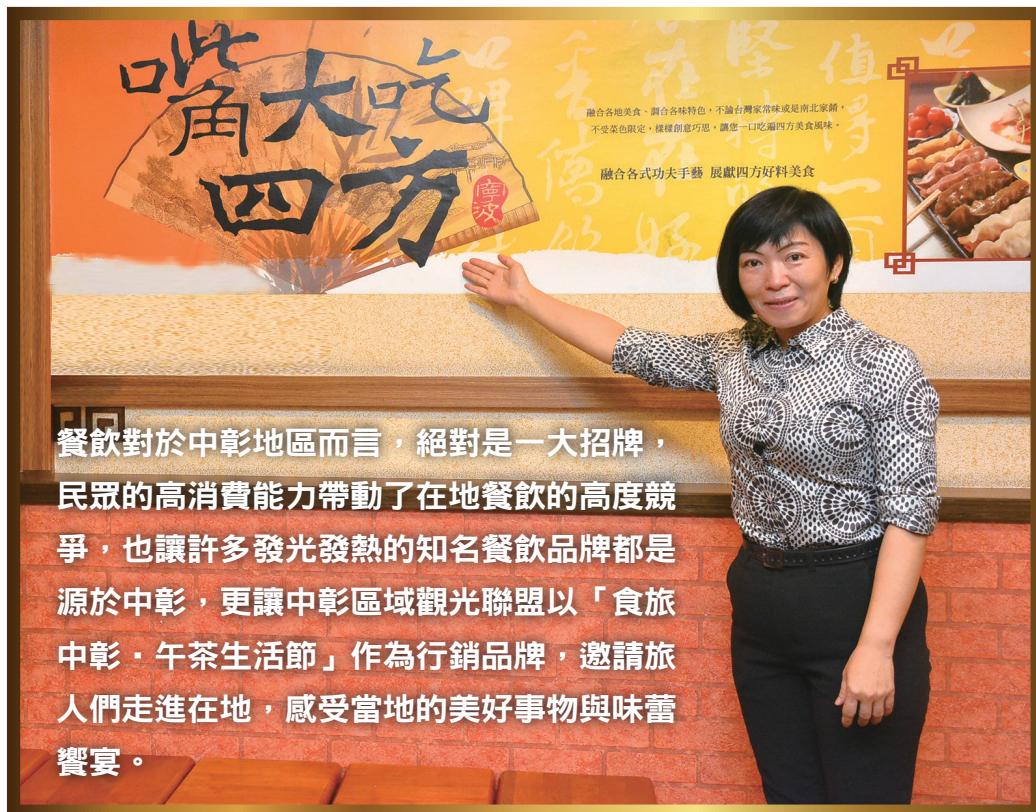 嘴大吃
四方
寧波
融合各地美食、調合各味特色，不論台灣家常味或是南北家餚，
不受菜色限定，樣樣創意巧思，讓您一口吃遍四方美食風味。
融合各式功夫手藝 展獻四方好料美食
餐飲對於中彰地區而言，絕對是一大招牌，
民眾的高消費能力帶動了在地餐飲的高度競
爭，也讓許多發光發熱的知名餐飲品牌都是
源於中彰，更讓中彰區域觀光聯盟以「食旅
中彰・午茶生活節」作為行銷品牌，邀請旅
人們走進在地，感受當地的美好事物與味蕾
饗宴。